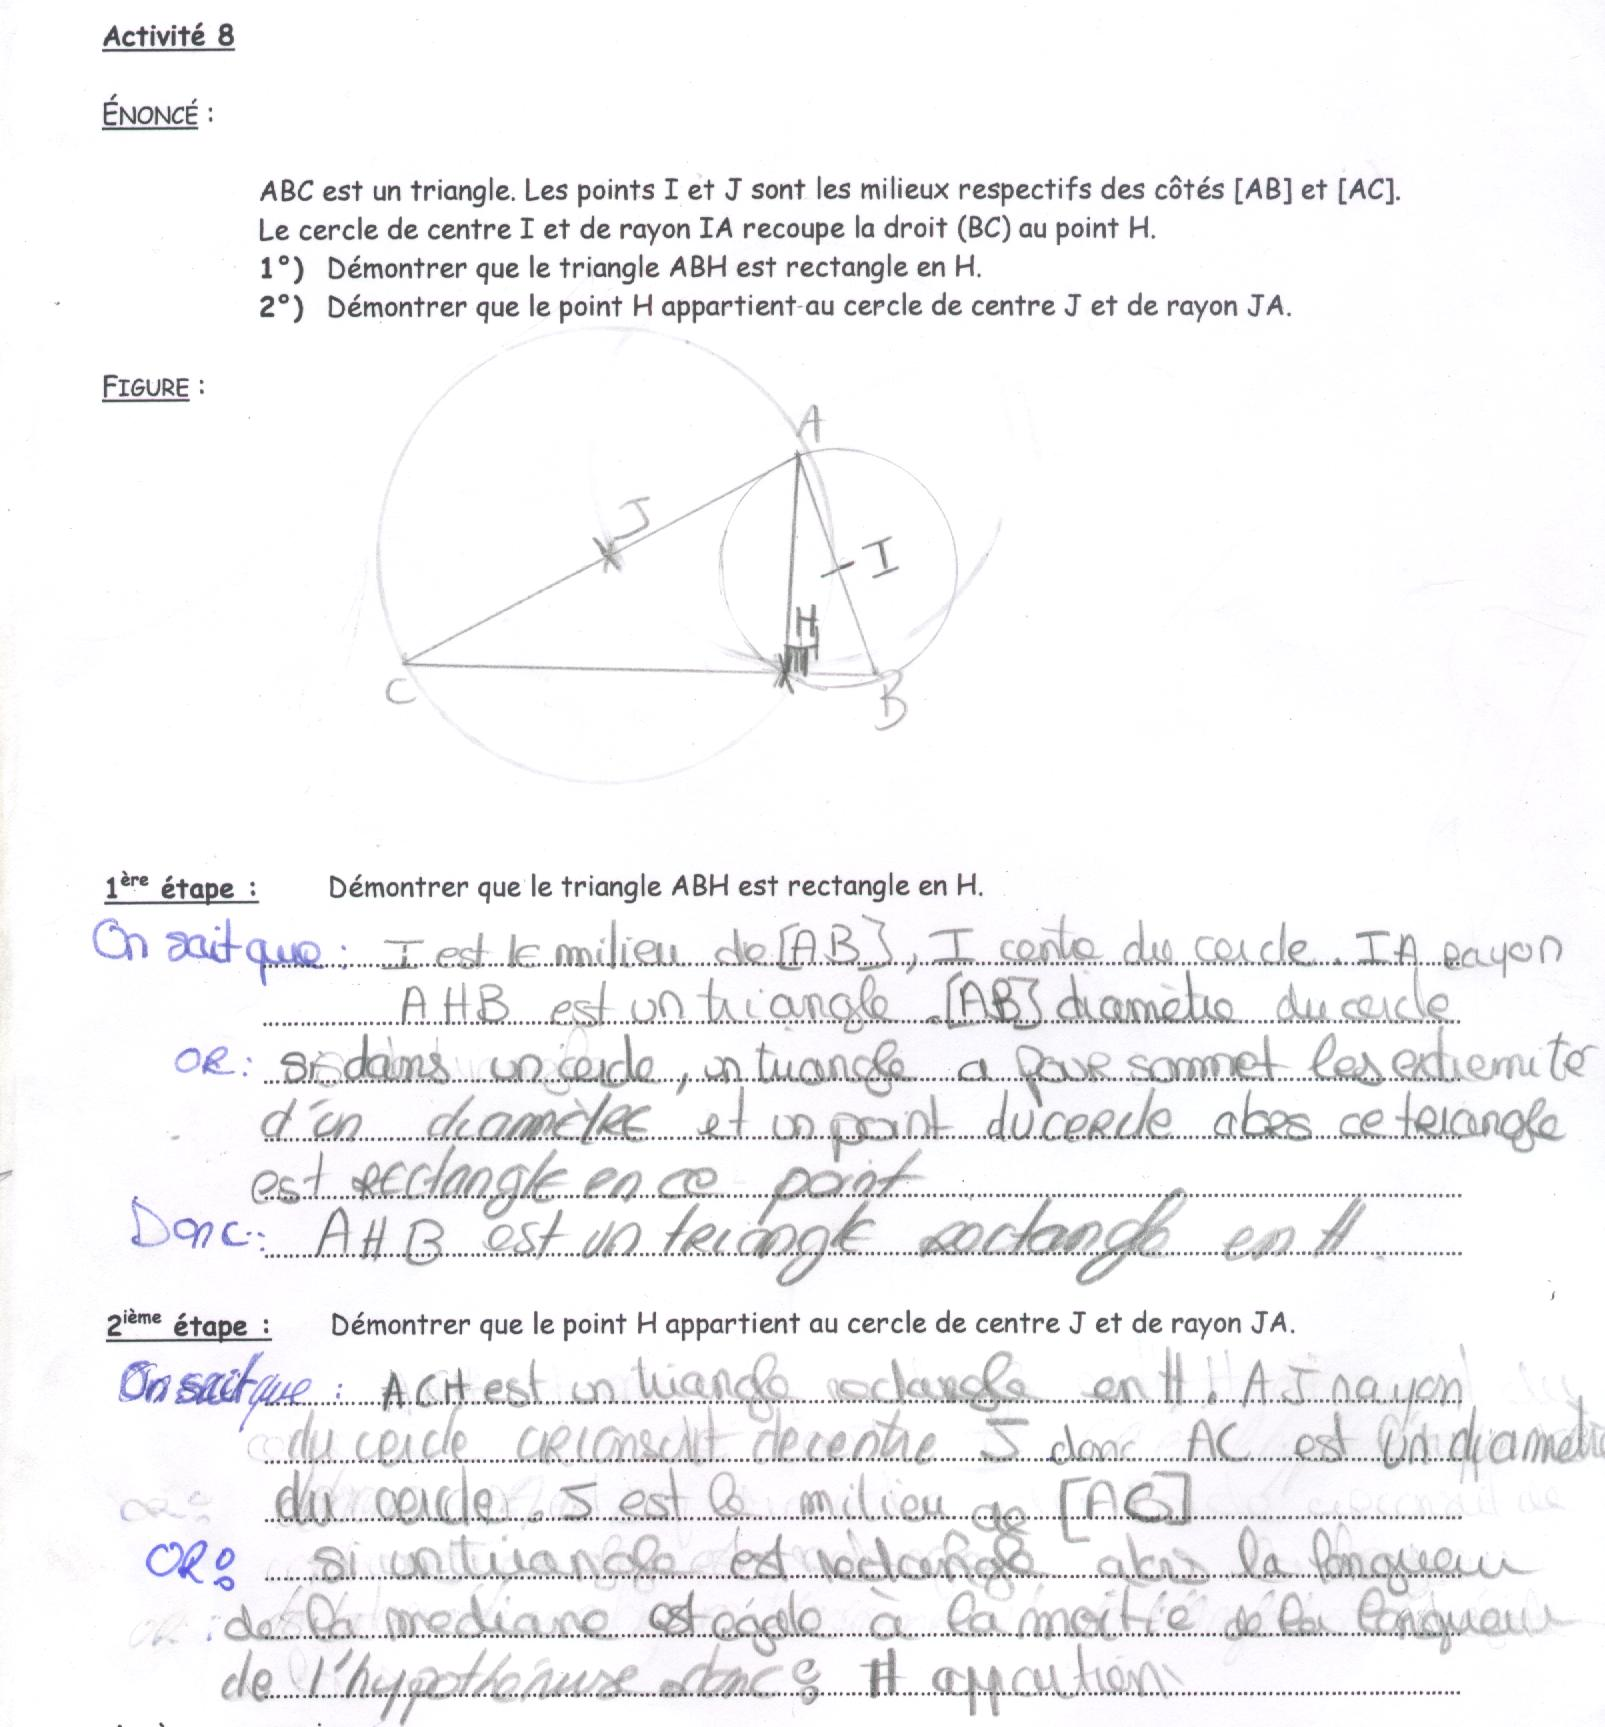 Activité 8
ÉNONCÉ :
ABC est un triangle. Les points I et J sont les milieux respectifs des côtés [AB] et [AC].
Le cercle de centre I et de rayon IA recoupe la droit (BC) au point H.
1°) Démontrer que le triangle ABH est rectangle en H.
2°) Démontrer que le point H appartient au cercle de centre J et de rayon JA.
FIGURE :
A
J
I
H
C
B
1ère étape : Démontrer que le triangle ABH est rectangle en H.
On sait que : I est le milieu de [AB], I cente du cercle. IA rayon
AHB est un triangle .[AB] diamètre du cercle
OR: si dans un cercle, un triangle a pour sommet les extremité
d'un diamètre et un point du cercle alors ce triangle
est rectangle en ce point
Donc: AHB est un triangle rectangle en H.
2ième étape : Démontrer que le point H appartient au cercle de centre J et de rayon JA.
On sait que : ACH est un triangle rectangle en H. AJ rayon
du cercle circonscrit de centre J donc AC est un diametre
du cercle. J est le milieu de [AC]
OR: si un triangle est rectangle alors la longueur
de la mediane est égale à la moitié de la longueur
de l'hypothénuse donc : H appartien